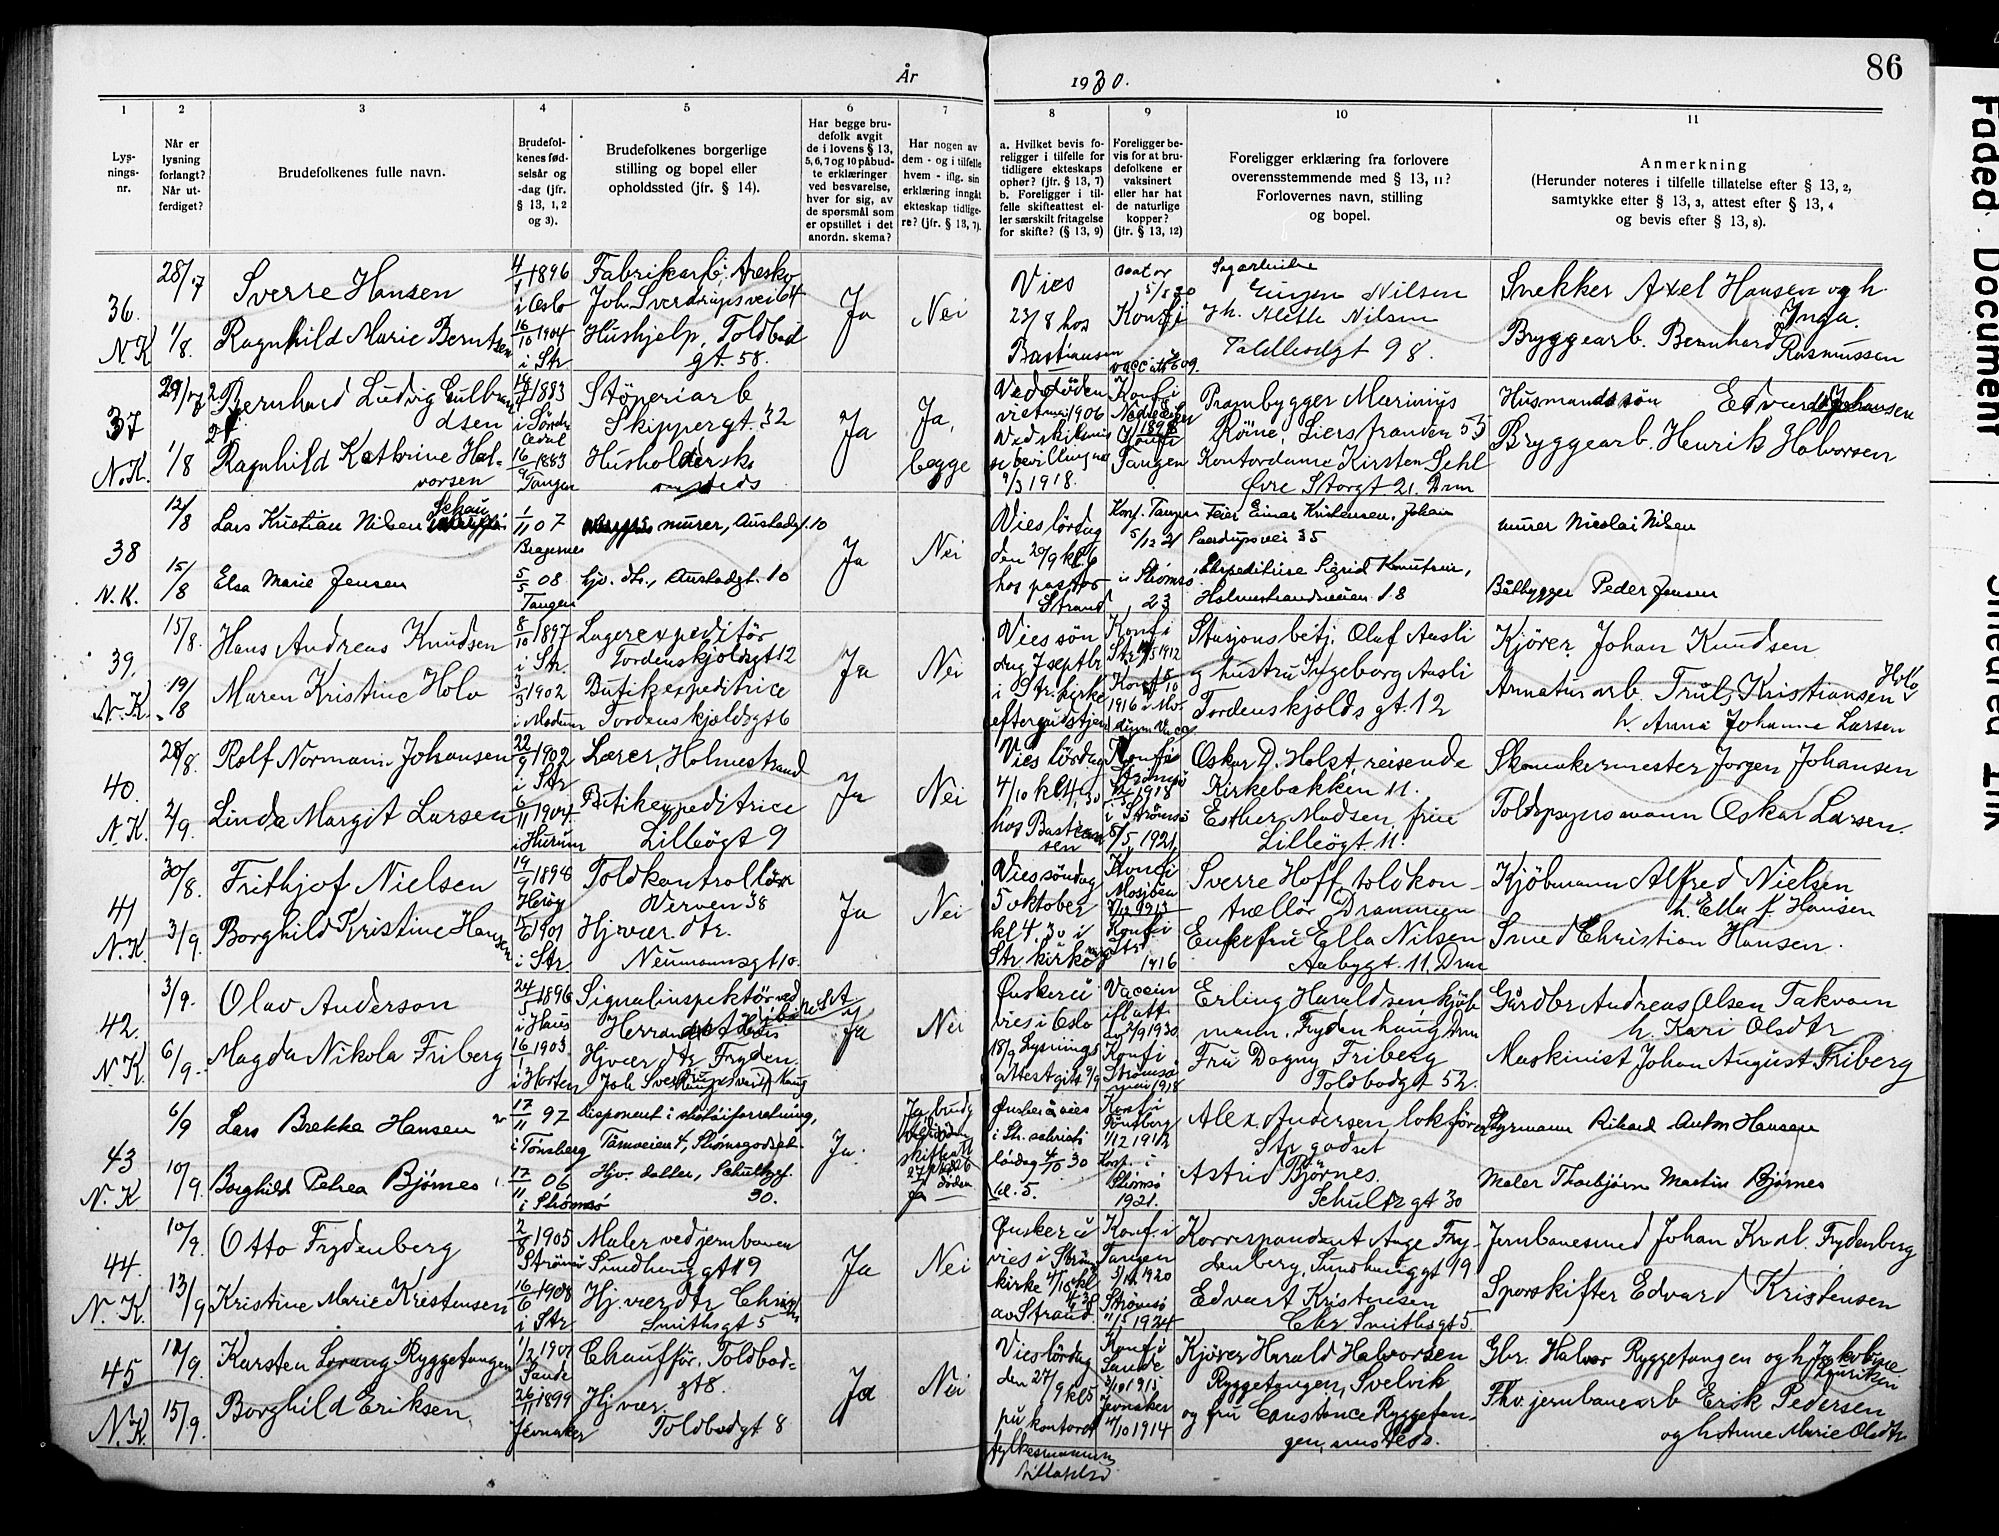 86
År
1930.
1
2
3
4
5
6
7
8
9
10
11
Lys-
nings-
nr.
Når er
lysning
forlangt?
Når ut-
ferdiget?
Brudefolkenes fulle navn.
Brudefol-
kenes fød-
selsår og
-dag (jfr.
§ 13, 1, 2
og 3).
Brudefolkenes borgerlige
stilling og bopel eller
opholdssted (jfr. § 14).
Har begge bru-
defolk avgit
de i lovens § 13,
5, 6, 7 og 10 påbud-
te erklæringer
ved besvarelse,
hver for sig, av
de spørsmål som
er opstillet i det
anordn. skema?
Har nogen av
dem - og i tilfelle
hvem - iflg. sin
erklæring inngått
ekteskap tidlige-
re? (jfr. § 13, 7).
a. Hvilket bevis fo-
religger i tilfelle for
tidligere ekteskaps
ophør? (jfr. § 13, 7)
b. Foreligger i til-
felle skifteattest el-
ler særskilt fritagelse
for skifte? (§ 13, 9)
Foreligger be-
vis for at bru-
defolkene er
vaksinert
eller har hat
de naturlige
kopper?
(jfr. § 13, 12)
Foreligger erklæring fra forlovere
overensstemmende med § 13, 11?
Forlovernes navn, stilling
og bopel.
Anmerkning
(Herunder noteres i tilfelle tillatelse efter § 13, 2,
samtykke efter § 13, 3, attest efter § 13, 4
og bevis efter § 13, 8).
36.
N.K
28/7
1/8.
Sverre Hansen
Ragnhild Marie Berntsen
4/1 1896
i Oslo
16/10 1904
i Str
Fabrikarb. Aresko
Joh. Sverdrupsvei 64
Hushjelp, Toldbod
gt. 58.
Ja
Nei
Vies
23/8 hos
Bastiansen
Konfi
Nilsen
Nilsen
98.
Snekker Axel Hansen og h.
Inga.
Bryggearb. Bernhard Rasmussen
37
N.K.
29/7
1/8
Bernhard Ludvig Gulbran
dsen
Ragnhild Kathrine Hal-
vorsen
1883
16/9 1883
Tangen
Støperiarb
Skippergt. 32
Husholderske
Ja
Ja,
begge
Ved døden
1906
Ved skilsmis
sebevilling
9/3 1918.
Konfi
Tangen
Prambygger
Lierstranden 53
Kontordame Kirsten
Øvre Storgt 21. Drm
Husmandssøn Edvard Johansen
Bryggearb. Henrik Halvorsen
38
N.K.
12/8
15/8
Lars Kristian Nilsen Schau
Elsa Marie Jensen
1/11 07
Bragernes
5/5 08
Tangen
murer, Austadgt. 10
hjv. dtr., Austadgt. 10
Ja
Nei
Vies lördag
den 20/9 kl 6
hos pastor
Strand
Konf. Tangen
5/12 21
i Strømsø
23
Feier Einar Kristensen, Johan
Sverdrupsvei 35
Ekspeditrise Sigrid Knutsen,
Holmestrandsveien 18
murer Nicolai Nilsen
Båtbygger Peder Jensen
39.
N.K.
15/8.
19/8
Hans Andreas Knudsen
Maren Kristine Holo
8/10 1897
i Str.
3/3 1902
i Modum
Lagerexpeditør
Tordenskjoldsgt 12
Butikexpeditrice
Tordenskjoldsgt 6
Ja
Nei
Vies søn
dag 7 septbr
i Str. kirke
efter gudstjen
Konfi
1912
Konf
1916 i Mo-
dum
Stasjonsbetj. Olaf Aasli
g hustru Ingeborg Aasli
Tordenskjolds gt. 12
Kjører Johan Knudsen
Armaturarb. Truls Kristiansen Holo
h. Anna Johanne Larsen
40.
N.K.
28/8.
2/9.
Rolf Normann Johansen
Linda Margit Larsen
22/9 1902
i Str
6/11 1904
i Hurum
Lærer, Holmestrand
Butikexpeditrice
Lilleøgt 9
Ja
Nei
Vies lördag
4/10 kl 4,30
hos Bastian
sen
Konfi
Strømsø
1918
i Strømsø
8/5 1921
Oskar D. Holst, reisende
Kirkebakken 11.
Esther Madsen, frue
Lilleøgt 11.
Skomakermester Jørgen Johansen
Toldopsynsmann Oskar Larsen.
41
N.K.
30/8.
3/9.
Frithjof Nielsen
Borghild Kristine Hansen
19/9 1898
Herøy
1901
i Str
Toldkontrollør
Verven 38
Hjvær dtr.
Neumannsgt 10.
Ja
Nei
Vies søndag
5 oktober
kl 4.30 i
Str kirke
Konfi
Mosjøen
1913
Konfi
Str
1916
Sverre Hoff, toldkon-
trollør Drammen
Enkefru Ella Nilsen
Aabygt. 11. Drm
Kjøbmann Alfred Nielsen
h. Ella f. Hansen
Smed Christian Hansen.
42.
N.K.
3/9.
6/9.
Olav Anderson
Magda Nikola Friberg
24/5 1896
i Haus
16/1 1903
i Horten
Signalinspektør ved
N.S.A
Hjvær dtr Fryden
haug
Ja
Nei
Ønsker å
vies i Oslo
18/9 Lysnings
attest gitt 9/9
Vaccin
2/9 1930
Konfi
Strømsø
1918
Erling Haraldsen kjøb
mann, Frydenhaug Drm
Fru Dagny Friberg
Toldbodgt 52.
Gårdbr Andreas Olsen Takvam
h. Kari Olsdtr
Maskinist Johan August Friberg
43
N.K
6/9
10/9
Lars Brekke Hansen
Borghild Petrea Bjørnes
17/11 97
i Tønsberg
17/11 06
i Strømsø
Disponent i skotøiforretning,
Tamveien 4, Strømsgodset
Hjv. datter, Schultzgt.
30.
Ja.
Ønsker å vies
i Str. sakristi
lørdag 4/10 30
kl. 5.
Konf i
Tønsberg
1/12 1912
Konf. i
Strømsø
1921.
Alex Andersen, lokfører
Str godset
Astrid Bjørnes.
Schultz gt 30
Styrmann Rikard Anton Hansen
Maler Thorbjørn Martin Bjørnes
44.
N.K.
10/9.
13/9
Otto Frydenberg
Kristine Marie Kristensen
2/8 1905
Strømsø
16/6 1908
i Str
Maler ved jernbanen
Sundhaug gt 19
Hj. vær dtr Chr
Smithsgt 5
Ja
Nei
Ønsker å
vies i Strøms
kirke 4/10 kl
av Strand.
Konf. i
Tangen
1920
Strømsø
11/5 1924
Korrespondent Aage Fry-
denberg, Sundhauggt 19
Edvart Kristensen
Chr Smithsgt 5.
Jernbanesmed Johan Karl Frydenberg
Sporskifter Edvard Kristensen
45
N.K.
12/9.
15/9.
Karsten Lorang Ryggetangen
Borghild Eriksen,
1/2 1901
Sande
26/11 1899
Jevnaker
Chauffør, Toldbod-
gt 8.
Hj. vær.
Toldbodgt 8
Ja
Nei
Vies lördag
den 27/9 kl 5
på kontoret
fylkesmannen
tillatelse
Konfi
Sande
3/10 1915
Jevnaker
4/10 1914
Kjører Harald Halvorsen
Ryggetangen, Svelvik
og fru Constance Ryggetan-
gen, smsteds.
Gbr. Halvor Ryggetangen og h Jakobine
Henriksen
Fhv. jernbanearb Erik Pedersen
og h Anne Marie Olsdtr
Faded Document
Smeared Ink